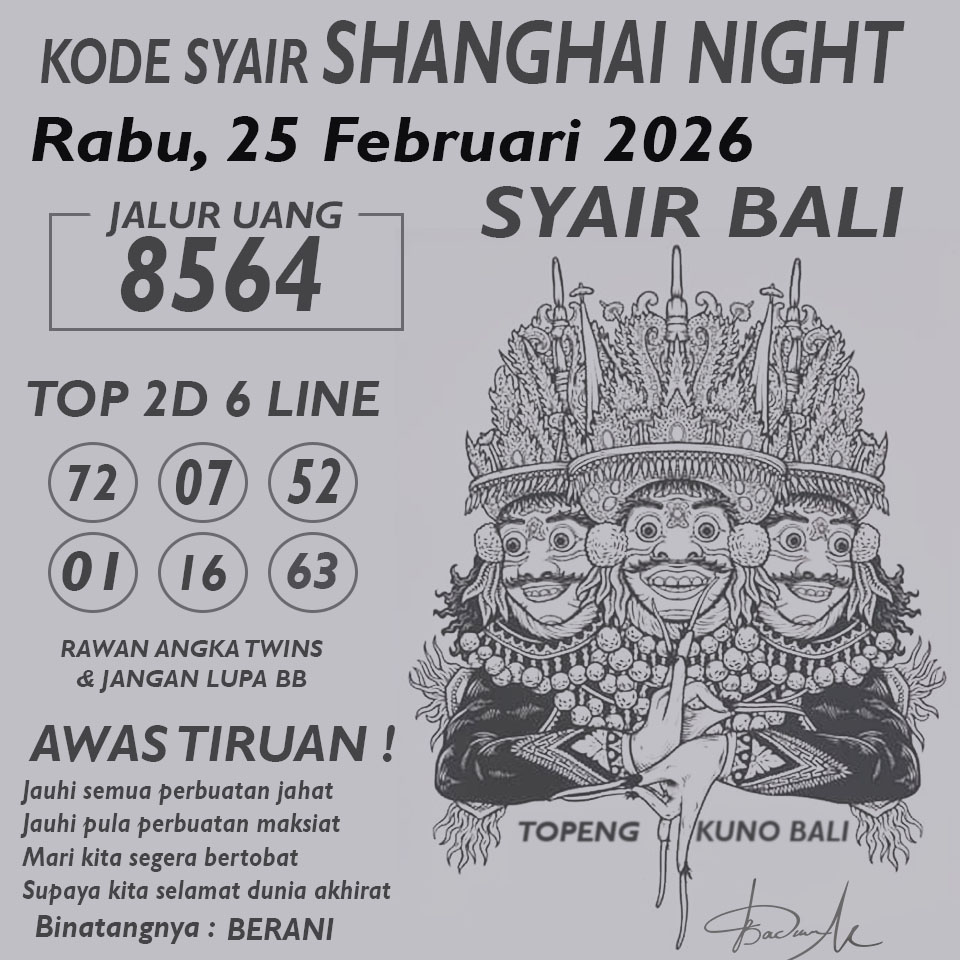 KODE SYAIR SHANGHAI NIGHT
Rabu, 25 Februari 2026
SYAIR BALI
JALUR UANG
8564
TOP 2D 6 LINE
72 07 52
01 16 63
RAWAN ANGKA TWINS
& JANGAN LUPA BB
AWAS TIRUAN !
Jauhi semua perbuatan jahat
Jauhi pula perbuatan maksiat
Mari kita segera bertobat
Supaya kita selamat dunia akhirat
Binatangnya : BERANI
TOPENG KUNO BALI